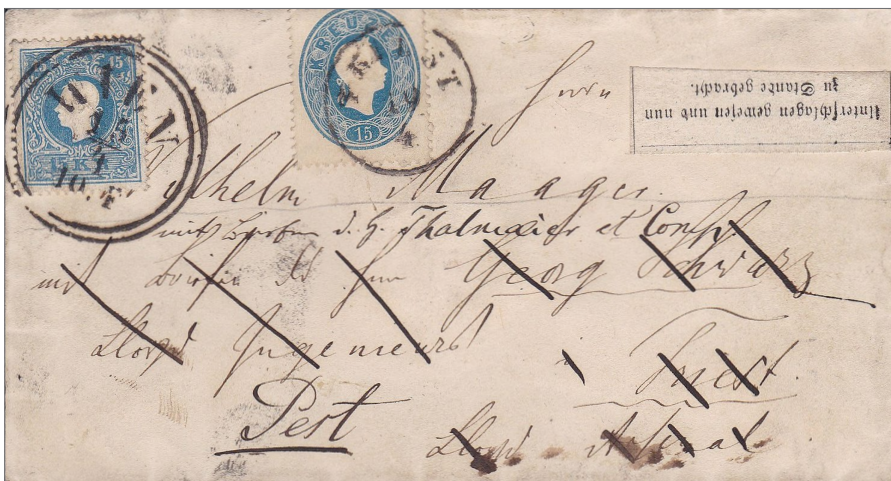 15
WIEN
15 K
KREUZER
15
TRIEST
10
4
Unterschlagen gewesen und nun
zu Stande gebracht.
Herrn
Wilhelm Maager
d. H. Thalmaier et Comp
mit Georg Schwarz
Lloyd Ingenieur Triest.
Pest Lloyd Arsenal